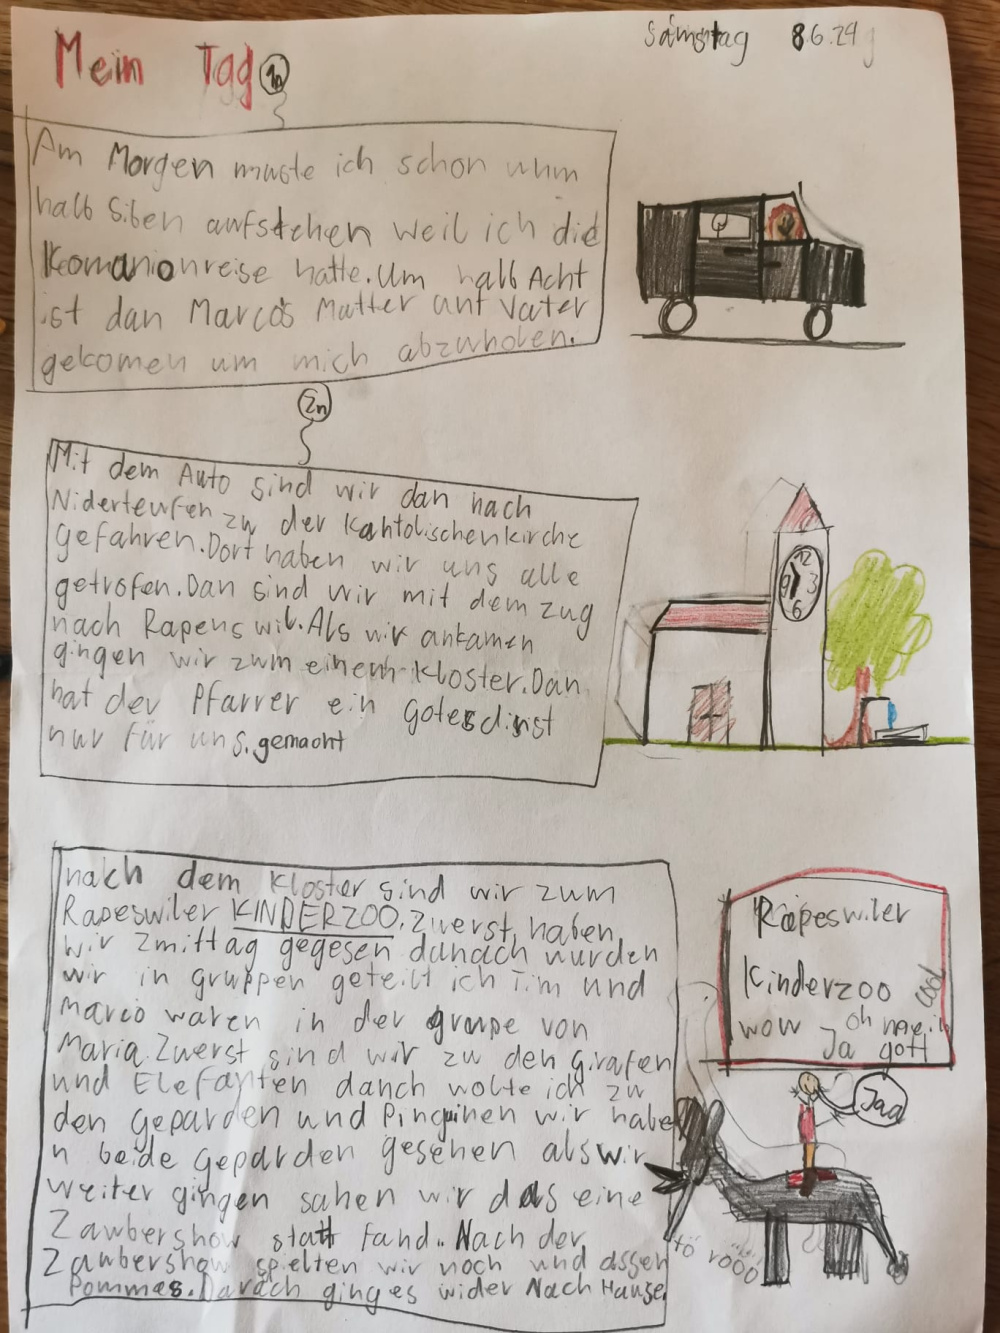 Mein Tag
Samstag 8.6.24
1n
Am Morgen muste ich schon uhm
halb Siben aufstehen weil ich die
Komanionreise hatte. Um halb Acht
ist dan Marcos Mutter unt Vater
gekomen um mich abzuholen.
2n
Mit dem Auto sind wir dan nach
Niderteufen zu der kahtolischenkirche
gefahren. Dort haben wir uns alle
getrofen. Dan sind wir mit dem zug
nach Rapenswil. Als wir ankamen
gingen wir zum einem kloster. Dan
hat der Pfarrer ein gotesdinst
nur für uns gemacht
12
9 3
6
nach dem Kloster sind wir zum
Rapeswiler KINDERZOO. Zuerst haben
wir Zmittag gegesen danach wurden
wir in gruppen geteilt ich Tim und
Marco waren in der grupe von
Maria. Zuerst sind wir zu den Girafen
und Elefanten danch wolte ich zu
den Geparden und Pinguinen wir habe
n beide Geparden gesehen als wir
weiter gingen sahen wir das eine
Zaubershow statt Fand. Nach der
Zaubershow spielten wir noch und assen
Pommes. Danach ging es wider Nach Hause.
Rapeswiler
Kinderzoo
cool
wow Ja oh mei
gott
Jaa
tö rööö